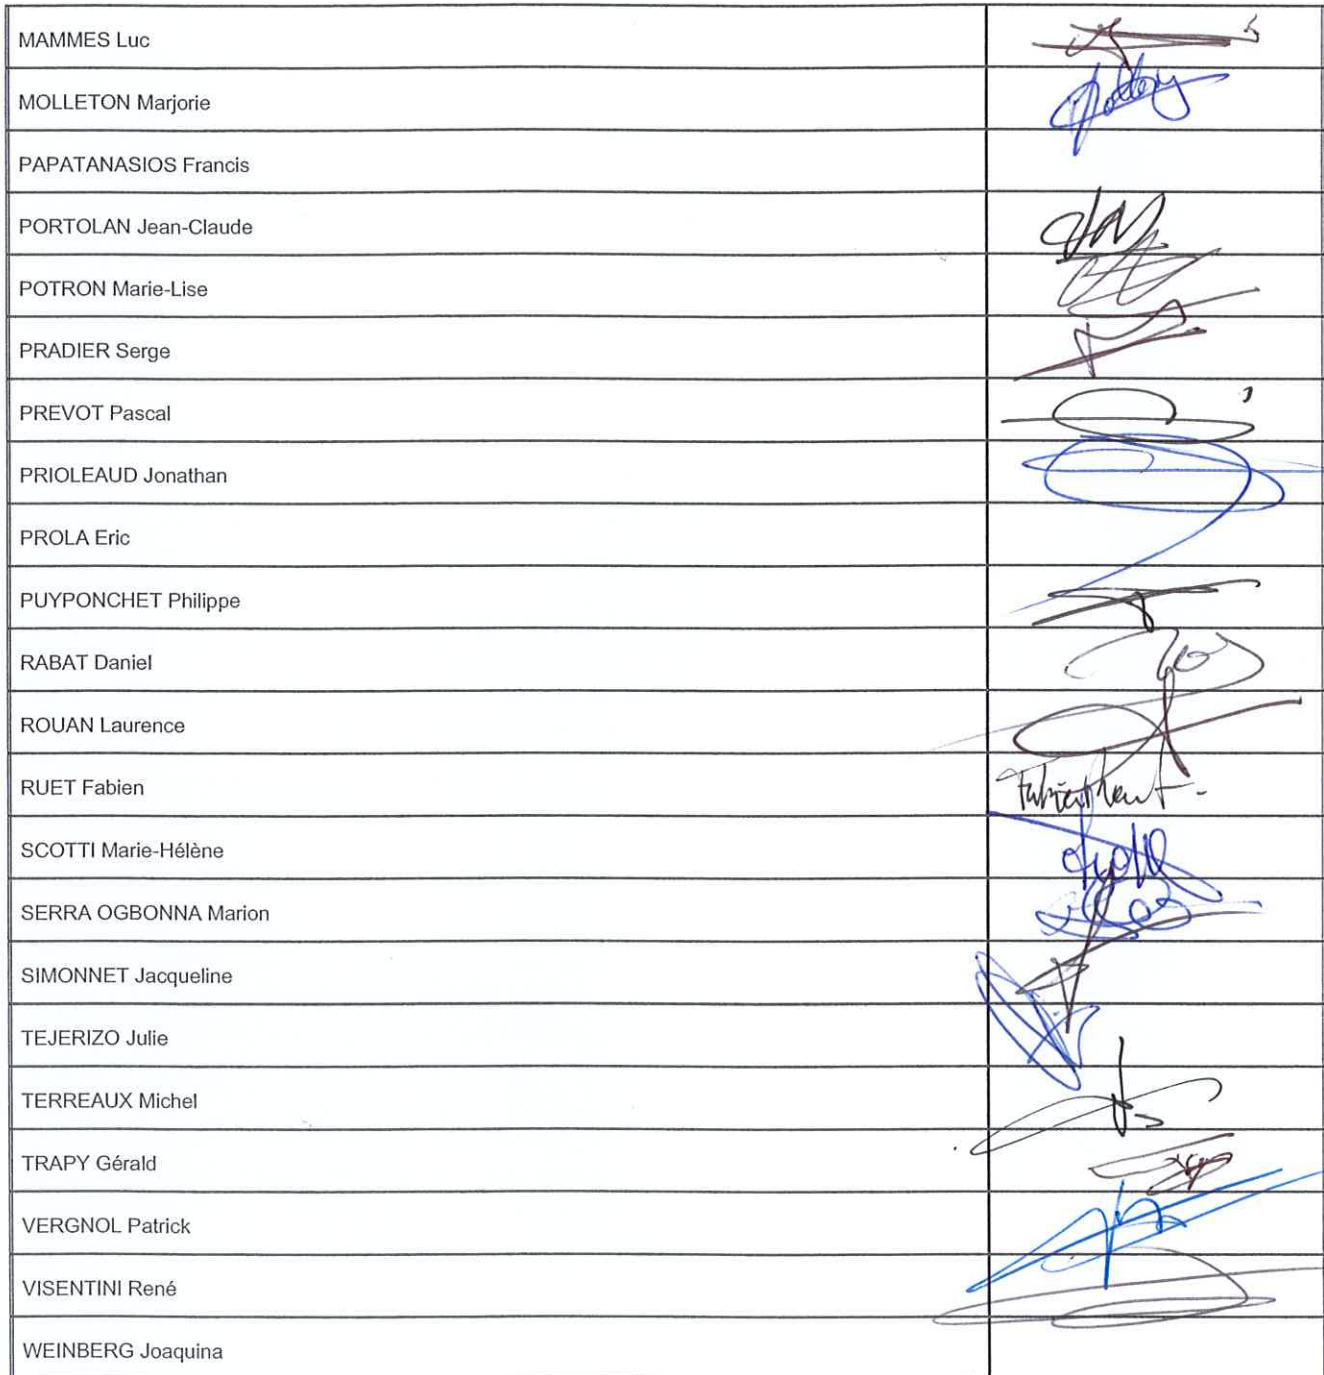 MAMMES Luc
MOLLETON Marjorie
PAPATANASIOS Francis
PORTOLAN Jean-Claude
POTRON Marie-Lise
PRADIER Serge
PREVOT Pascal
PRIOLEAUD Jonathan
PROLA Eric
PUYPONCHET Philippe
RABAT Daniel
ROUAN Laurence
RUET Fabien
SCOTTI Marie-Hélène
SERRA OGBONNA Marion
SIMONNET Jacqueline
TEJERIZO Julie
TERREAUX Michel
TRAPY Gérald
VERGNOL Patrick
VISENTINI René
WEINBERG Joaquina